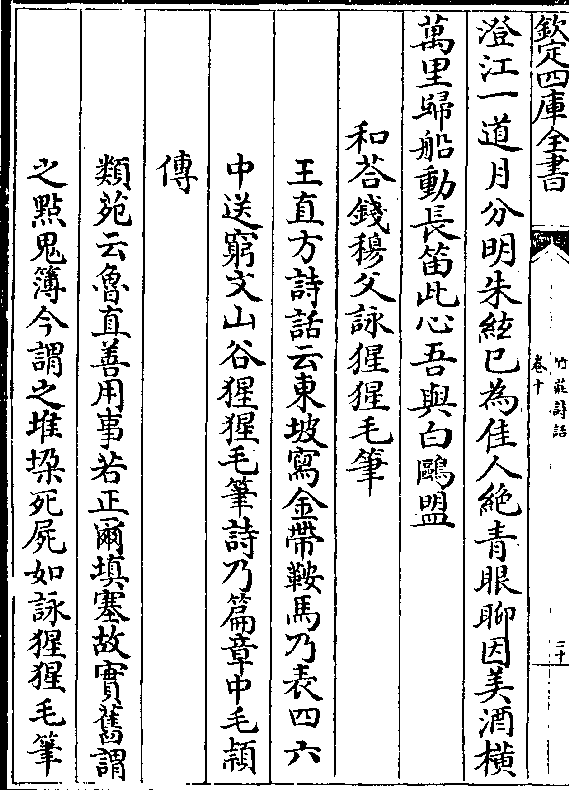 欽定四庫全書
竹莊詩話
卷十
二十
澄江一道月分明朱絃已為佳人絶青眼聊因美酒橫
萬里歸船動長笛此心吾與白鷗盟
和荅錢穆父詠猩猩毛筆
王直方詩話云東坡寫金帶鞍馬乃表四六
中送窮文山谷猩猩毛筆詩乃篇章中毛穎
傳
類苑云魯直善用事若正爾填塞故實舊謂
之㸃鬼簿今謂之堆垜死屍如詠猩猩毛筆